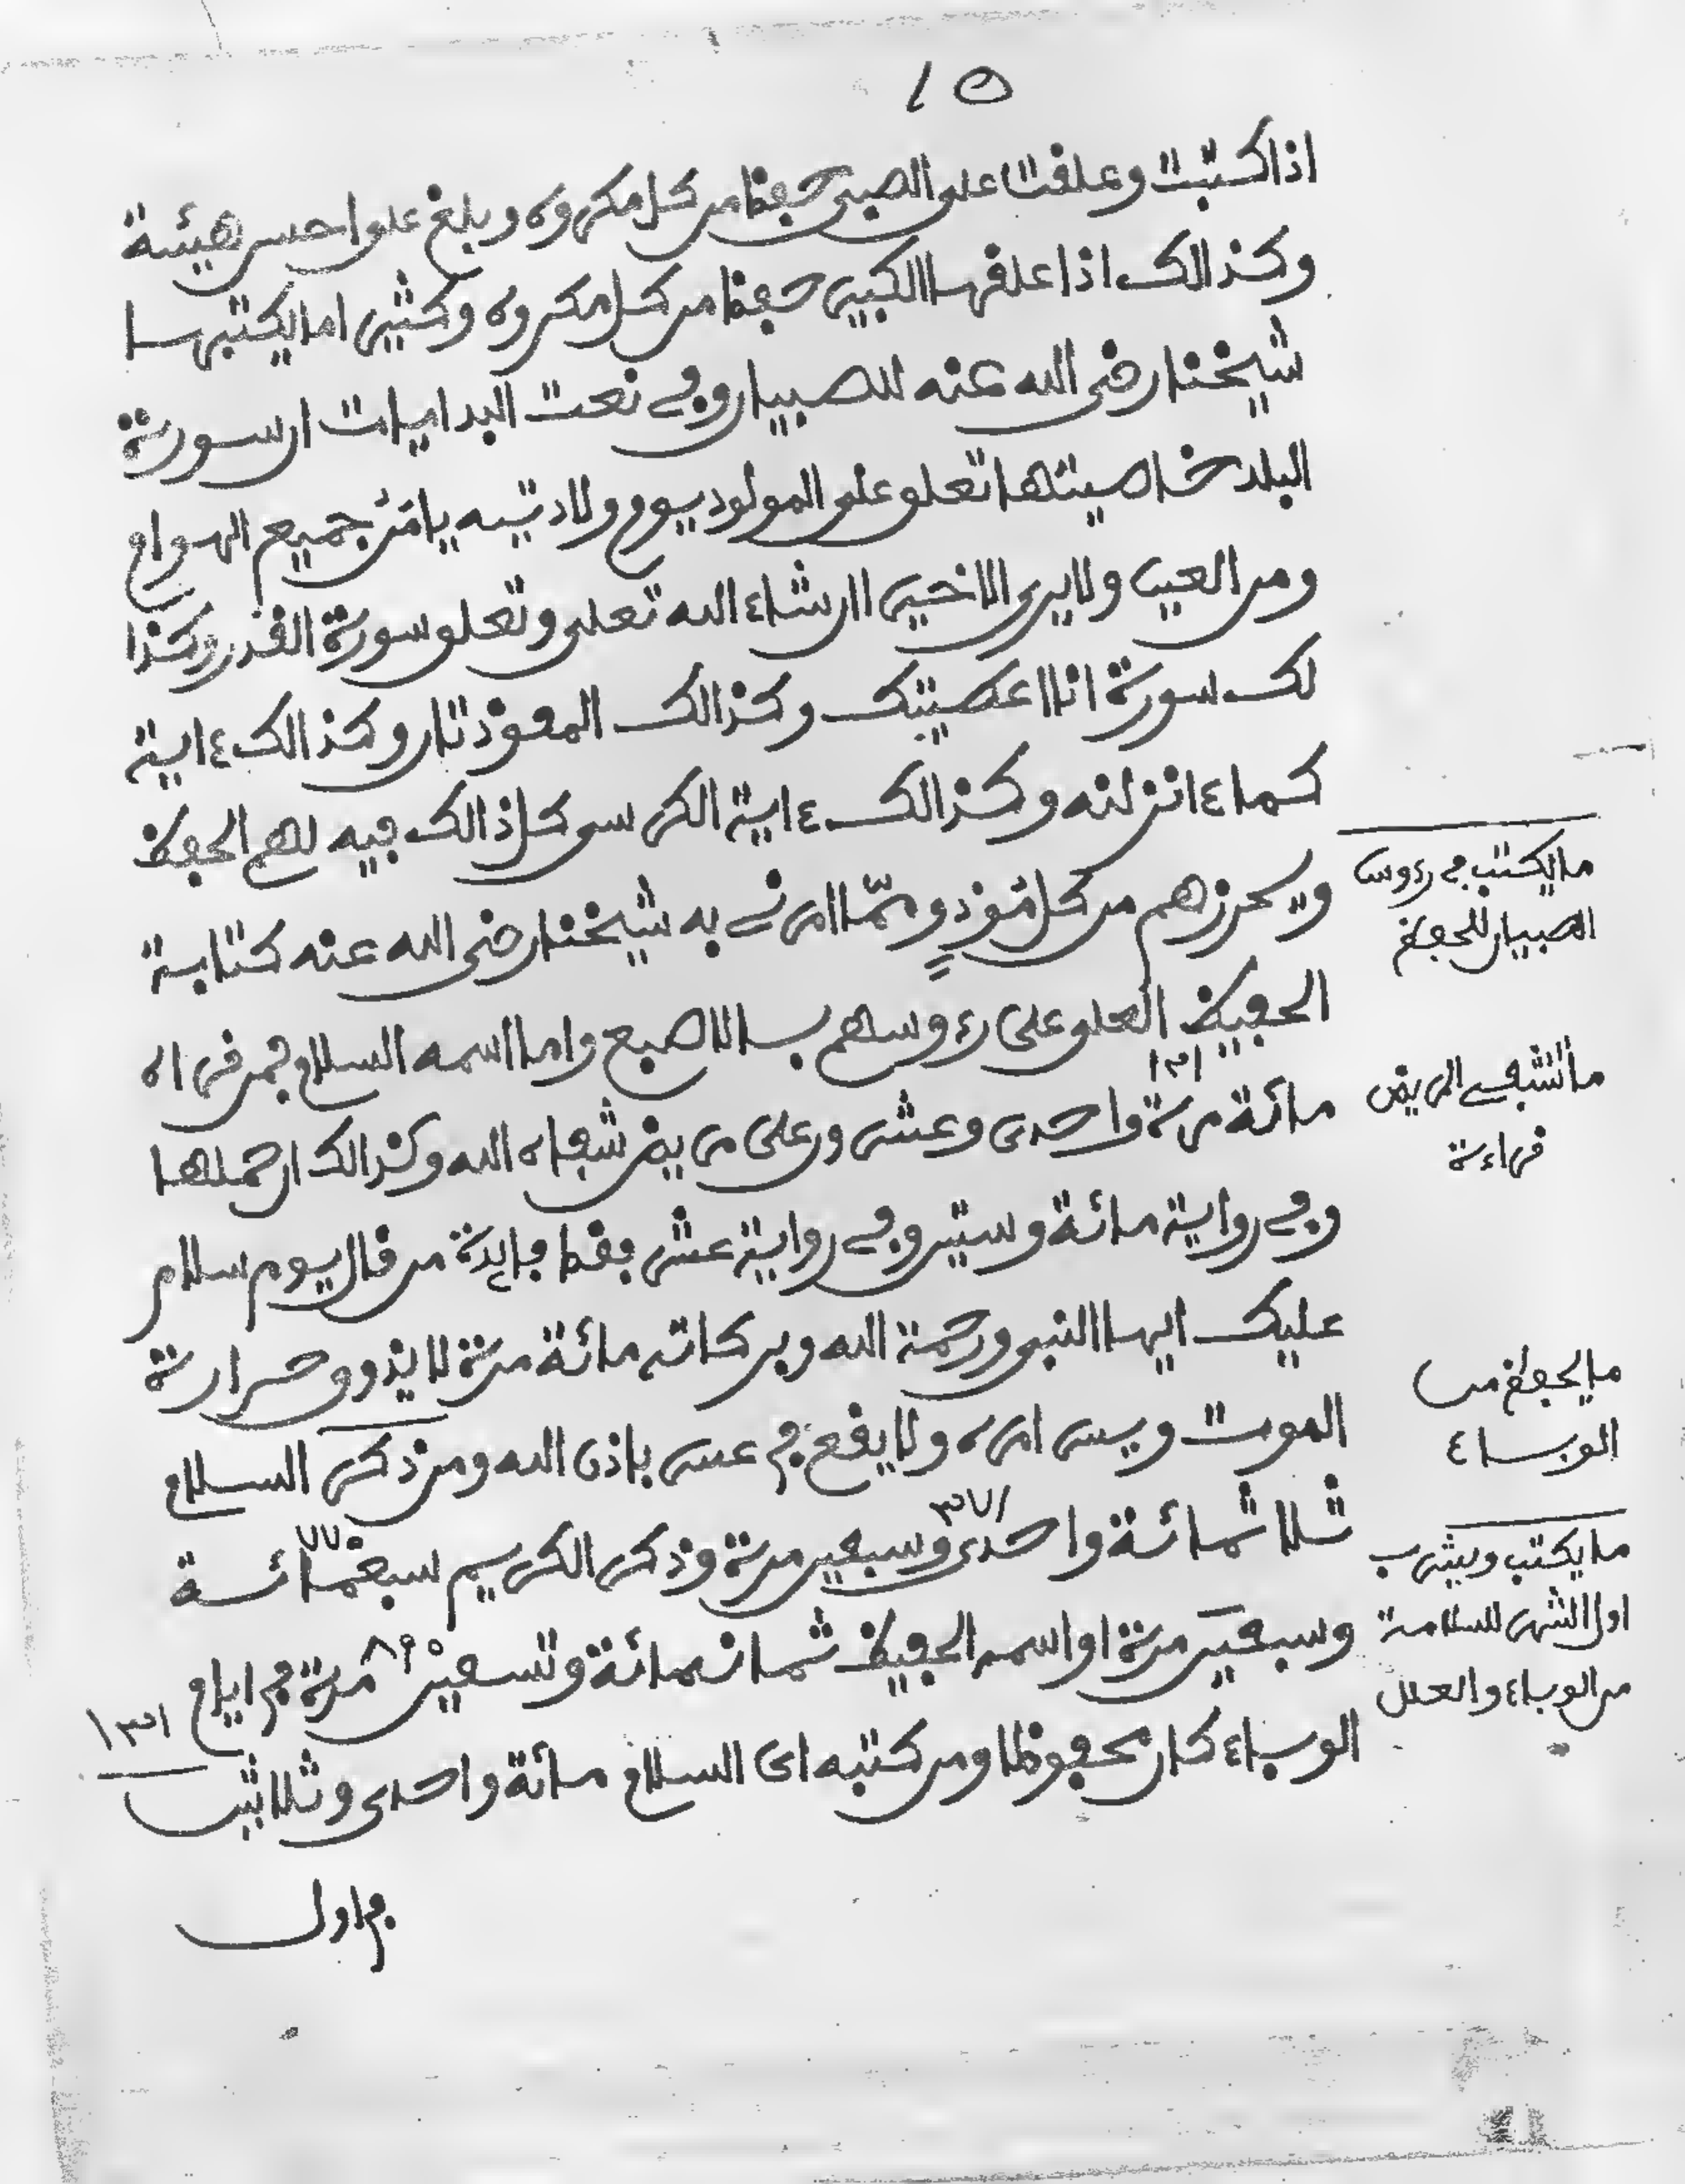 ١٥
اذا كتبت وعلفت على الصبى حفظ من كل مكروه وبلغ على احسن هيئة
وكذالك اذا علفها الكبير حفظ من كل مكروه وكثيرا ما يكتبها
شيخنا رضى الله عنه للصبيان وفى نعت البدايات ان سورة
البلد خاصيتها تعلق على المولود يوم ولادته يامن جميع الهوام
ومن العين ولا يرى الا خيرا ان شاء الله تعلى وتعلق سورة القدر وكذا
لك سورة انا اعطينك وكذالك المعوذتان وكذالك ءاية
كماء انزلنه وكذالك ءاية الكرسى كل ذالك فيه لهم الحفظ
ويحرزهم من كل مؤذ ومما امرنى به شيخنا رضى الله عنه كتابة
الحفيظ العلى على رءوسهم بالاصبع واما اسمه السلام فمن قراه
مائة مرة واحدى وعشرون على مريض شفاه الله وكذالك ان حملها
١٢١
وفى رواية مائة وستين وفى رواية عشر فقط فايدة من قال يوم سلام
عليك ايها النبى ورحمة الله وبركاته مائة مرة لا يذوق حرارة
الموت ويسر امره ولا يقع فى عسر باذن الله ومن ذكر السلام
ثلاثمائة واحدى وسبعين مرة وذكر الكريم سبعمائة
٣٧١
٧٧٠
وسبعين مرة او اسمه الحفيظ ثمانمائة وتسعين مرة فى ايام
٨٩٠
الوباء كان محفوظا ومن كتبه اى السلام مائة واحدى وثلاثين
١٣١
فى اول
ما يكتب فى رءوس
الصبيان للحفظ
ما تشفى المريض
قراءة
ما يحفظ من
الوباء
ما يكتب ويشرب
اول الشهر للسلامة
من الوباء والعلل